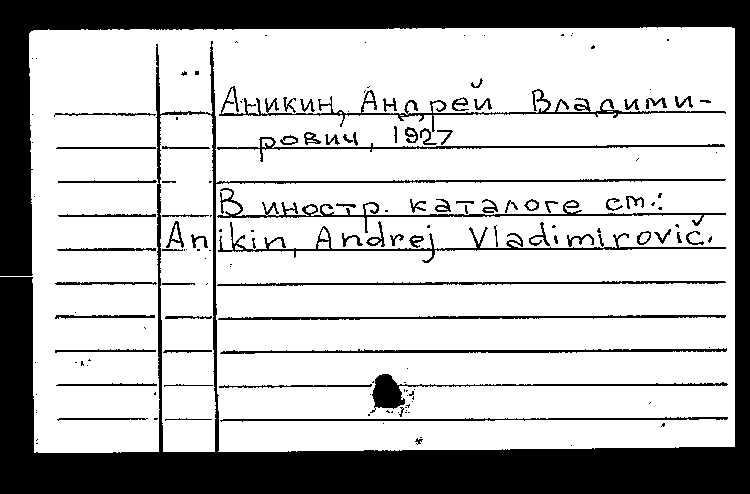 Аникин, Андрей Владими-
рович, 1927
В иностр. каталоге см.:
Anikin, Andrej Vladimirovič.